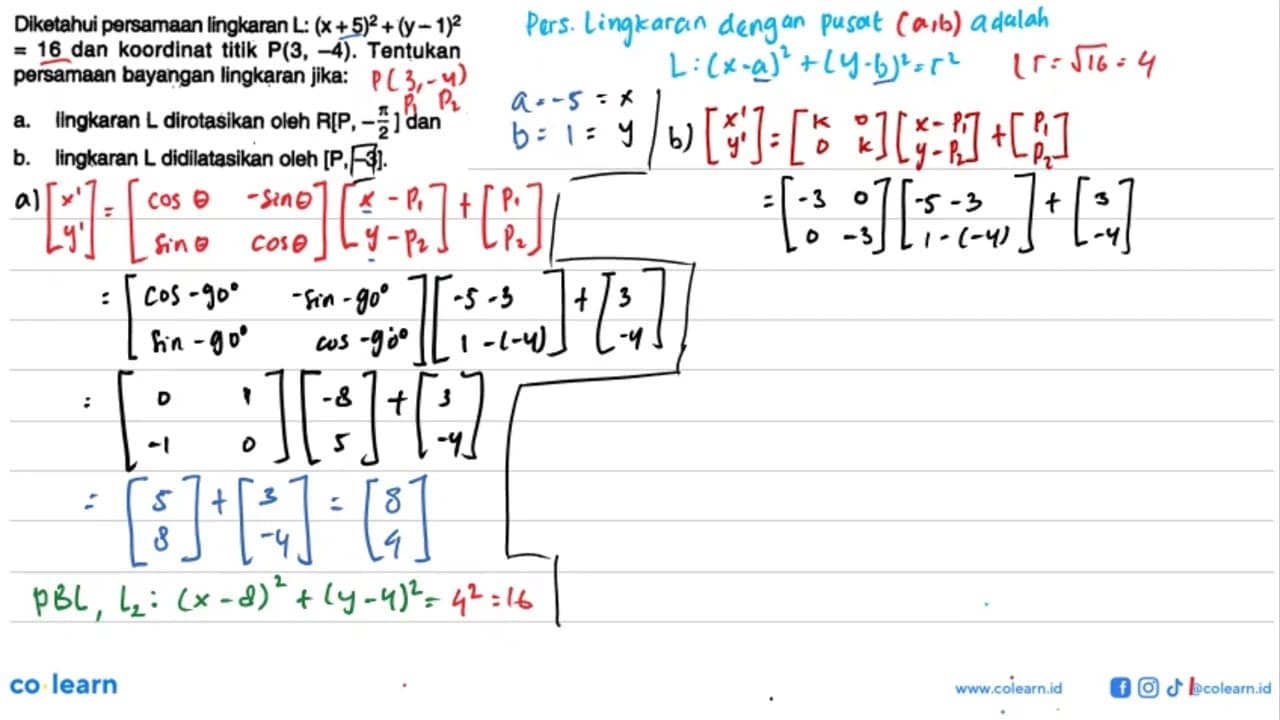 Diketahui persamaan lingkaran L: (x + 5)² + (y – 1)²
= 16 dan koordinat titik P(3, –4). Tentukan
persamaan bayangan lingkaran jika:
P(3,-4)
P₁ P₂
a. lingkaran L dirotasikan oleh R[P, –π/2] dan
b. lingkaran L didilatasikan oleh [P, –3].
Pers. Lingkaran dengan pusat (a,b) adalah
L: (x-a)² + (y-b)² = r² (r = √16 = 4
a = -5 = x
b = 1 = y
a) [x' y'] = [cos θ -sin θ sin θ cos θ] [x - P₁ y - P₂] + [P₁ P₂]
= [cos -90° -sin -90° sin -90° cos -90°] [-5 -3 1 -(-4)] + [3 -4]
= [0 1 -1 0] [-8 5] + [3 -4]
= [5 8] + [3 -4] = [8 4]
PBL, L₂: (x-8)² + (y-4)² = 4² = 16
b) [x' y'] = [k 0 0 k] [x - P₁ y - P₂] + [P₁ P₂]
= [-3 0 0 -3] [-5 -3 1 -(-4)] + [3 -4]
co learn
www.colearn.id
@colearn.id